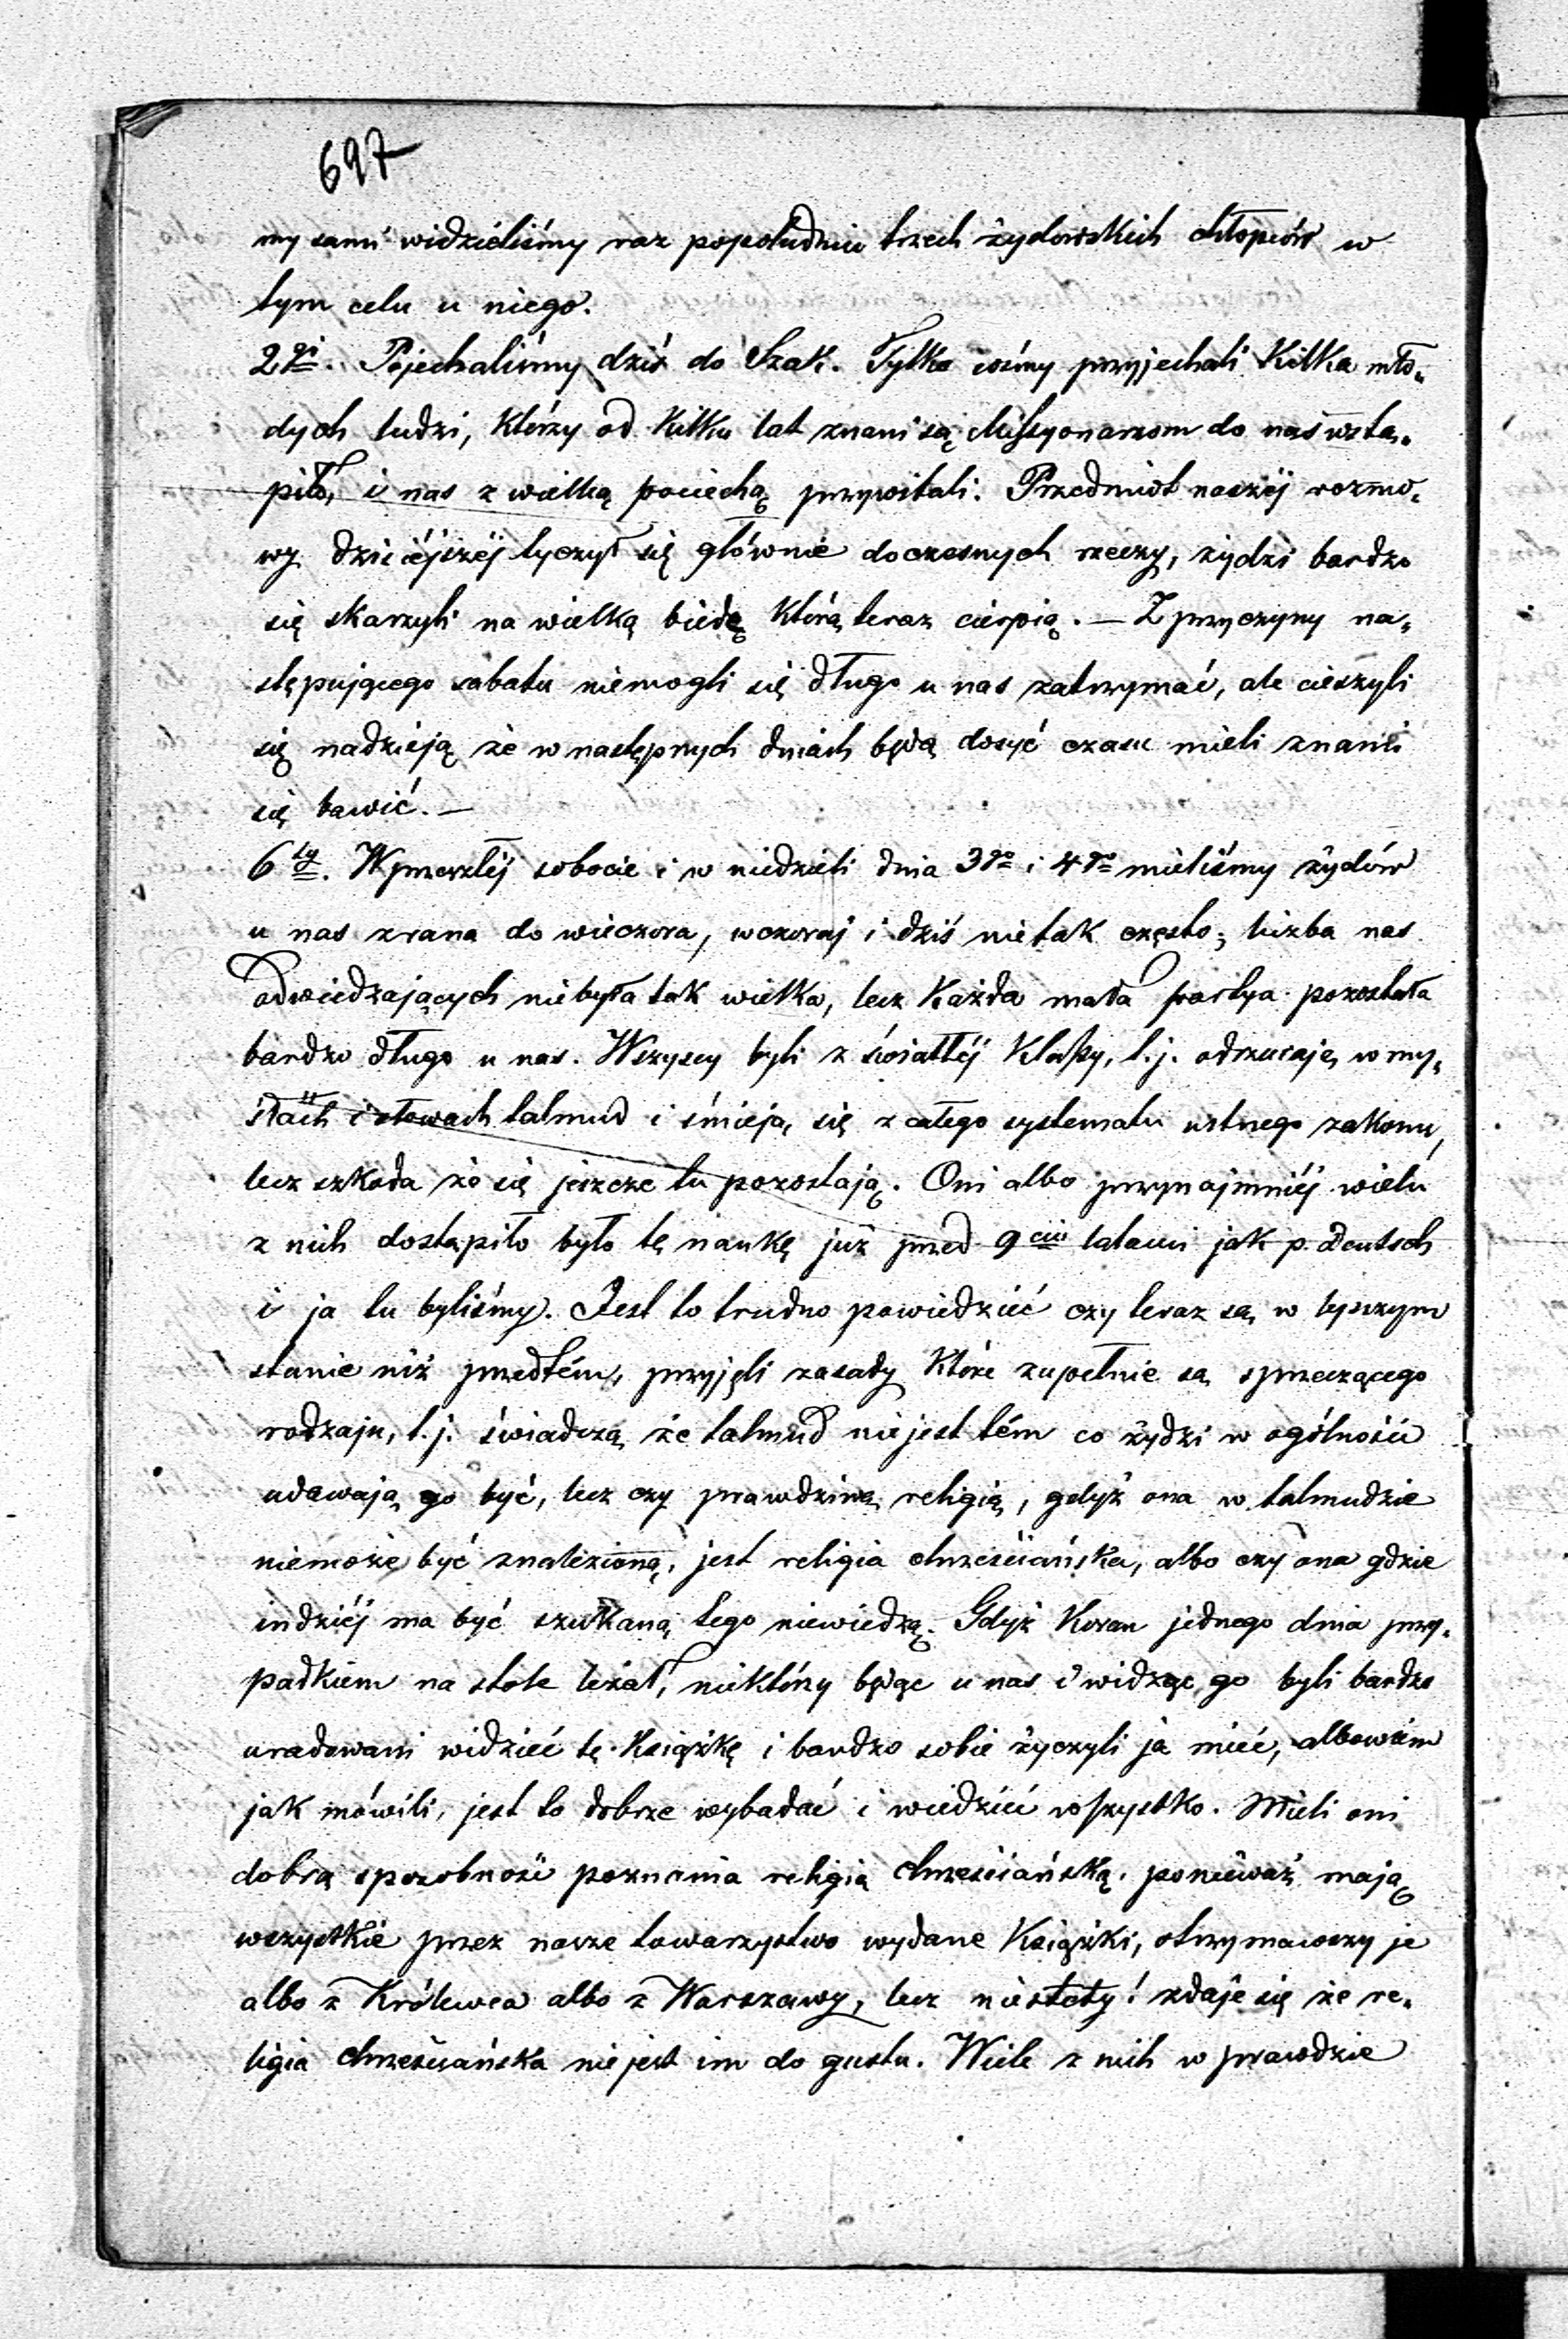 697
my sami widzieliśmy raz popołudniu trzech żydowskich chłopców w
tym celu u niego.
2gi. Pojechaliśmy dziś do Szak. Tylko cośmy przyjechali Kilka mło„
dych ludzi, którzy od Kilku lat znani są Missyonarzom do nas wstą„
piło, i nas z wielką pociechą przywitali. Przedmiot naszéj rozmo„
wy dziciéjszéj tyczył się głównie doczesnych rzeczy, żydzi bardzo
się skarzyli na wielką biedę którą teraz cierpią. — Z przyczyny na„
stępującego sabatu niemogli się długo u nas zatrzymać, ale cieszyli
się nadzieją że w następnych dniach będą dosyć czasu mieli znami
się bawić. —
6ty. W przeszłéj sobocie i w niedzieli dnia 3go i 4go mieliśmy żydów
u nas zrana do wieczora, wczoraj i dziś nie tak często; liczba nas
odwiedzających niebyła tak wielka, lecz Każda mała partya pozostała
bardzo długo u nas. Wszyscy byli z światłéj Klassy, t.j. odrzucają w my„
ślach i słowach talmud i śmieją się z całego systematu ustnego zakonu,
lecz szkoda że się jeszcze tu pozostają. Oni albo przynajmniéj wielu
z nich dostąpiło było tę naukę już przed 9ciu latami jak p. Deutsch
i ja tu byliśmy. Jest to trudno powiedzieć czy teraz są w lepszym
stanie niż przedtém, przyjęli zasady które zupełnie są sprzeczącego
rodzaju, t.j. świadczą że talmud nie jest tém co żydzi w ogólności
udawają go być, lecz czy prawdziwą religią, gdyż ona w talmudzie
niemoże być znalezioną, jest religia chrześciańska, albo czy ona gdzie
indziéj ma być szukaną tego niewiedzą. Gdyż Koran jednego dnia przy„
padkiem na stole leżał, niektórzy będąc u nas i widząc go byli bardzo
uradowani widzieć tę Książkę i bardzo sobie życzyli ją mieć, albowiém
jak mówili, jest to dobrze wybadać i wiedzieć wszystko. Mieli oni
dobrą sposobność poznania religią chrześciańską, ponieważ mają
wszystkie przez nasze towarzystwo wydane Książki, otrzymawszy je
albo z Królewca albo z Warszawy, lecz niestety! zdaje się że re„
ligia chrześciańska nie jest im do gustu. Wiele z nich w prawdzie